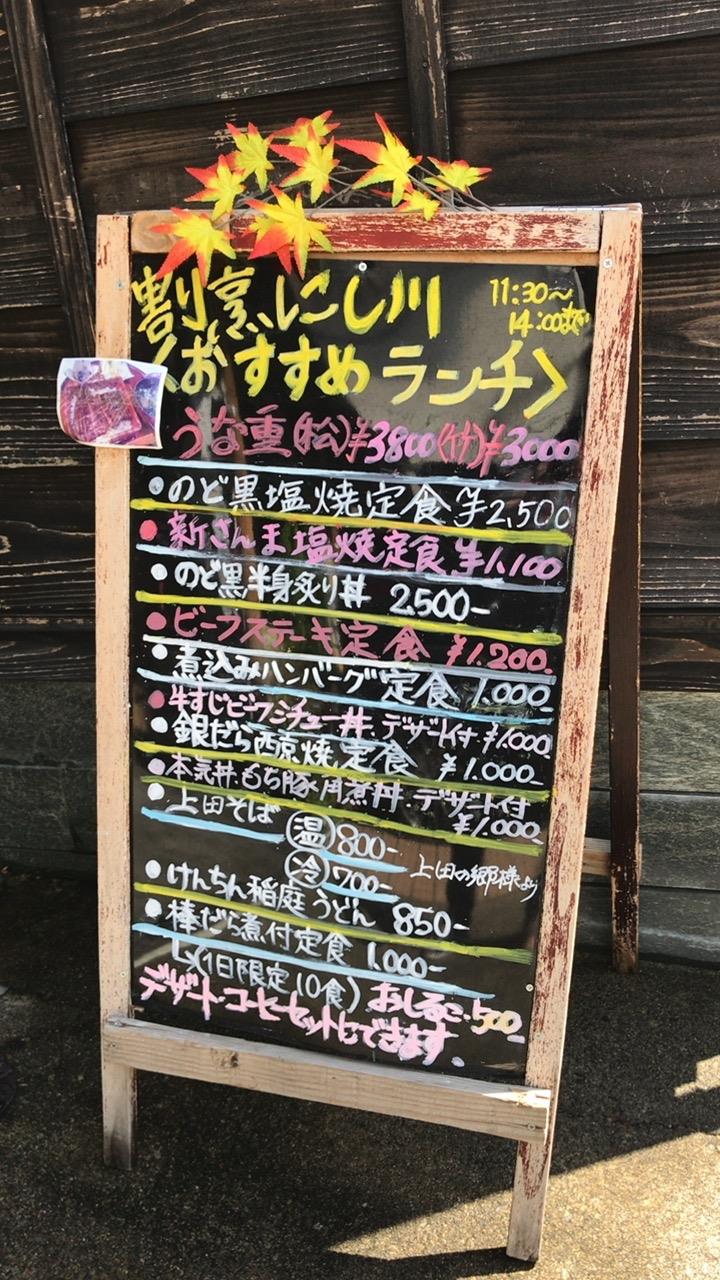 割烹にし川
11:30～
14:00まで
〈おすすめランチ〉
うな重(松)¥3800(竹)¥3000
・のど黒塩焼定食 ¥2,500
・新さんま塩焼定食 ¥1,100
・のど黒半身炙り丼 2.500-
・ビーフステーキ定食 ¥1.200-
・煮込みハンバーグ定食 1.000-
・牛すじビーフシチュー丼.デザート付 ¥1.000-
・銀だら西京焼.定食 ¥1.000-
・本気丼.もち豚角煮丼.デザート付
¥1.000-
・上田そば 温 800-
冷 700- 上田の郷様より
・けんちん稲庭うどん 850-
・棒だら煮付定食 1.000-
(1日限定10食) おしるこ.500-
デザート・コーヒーセットにできます.